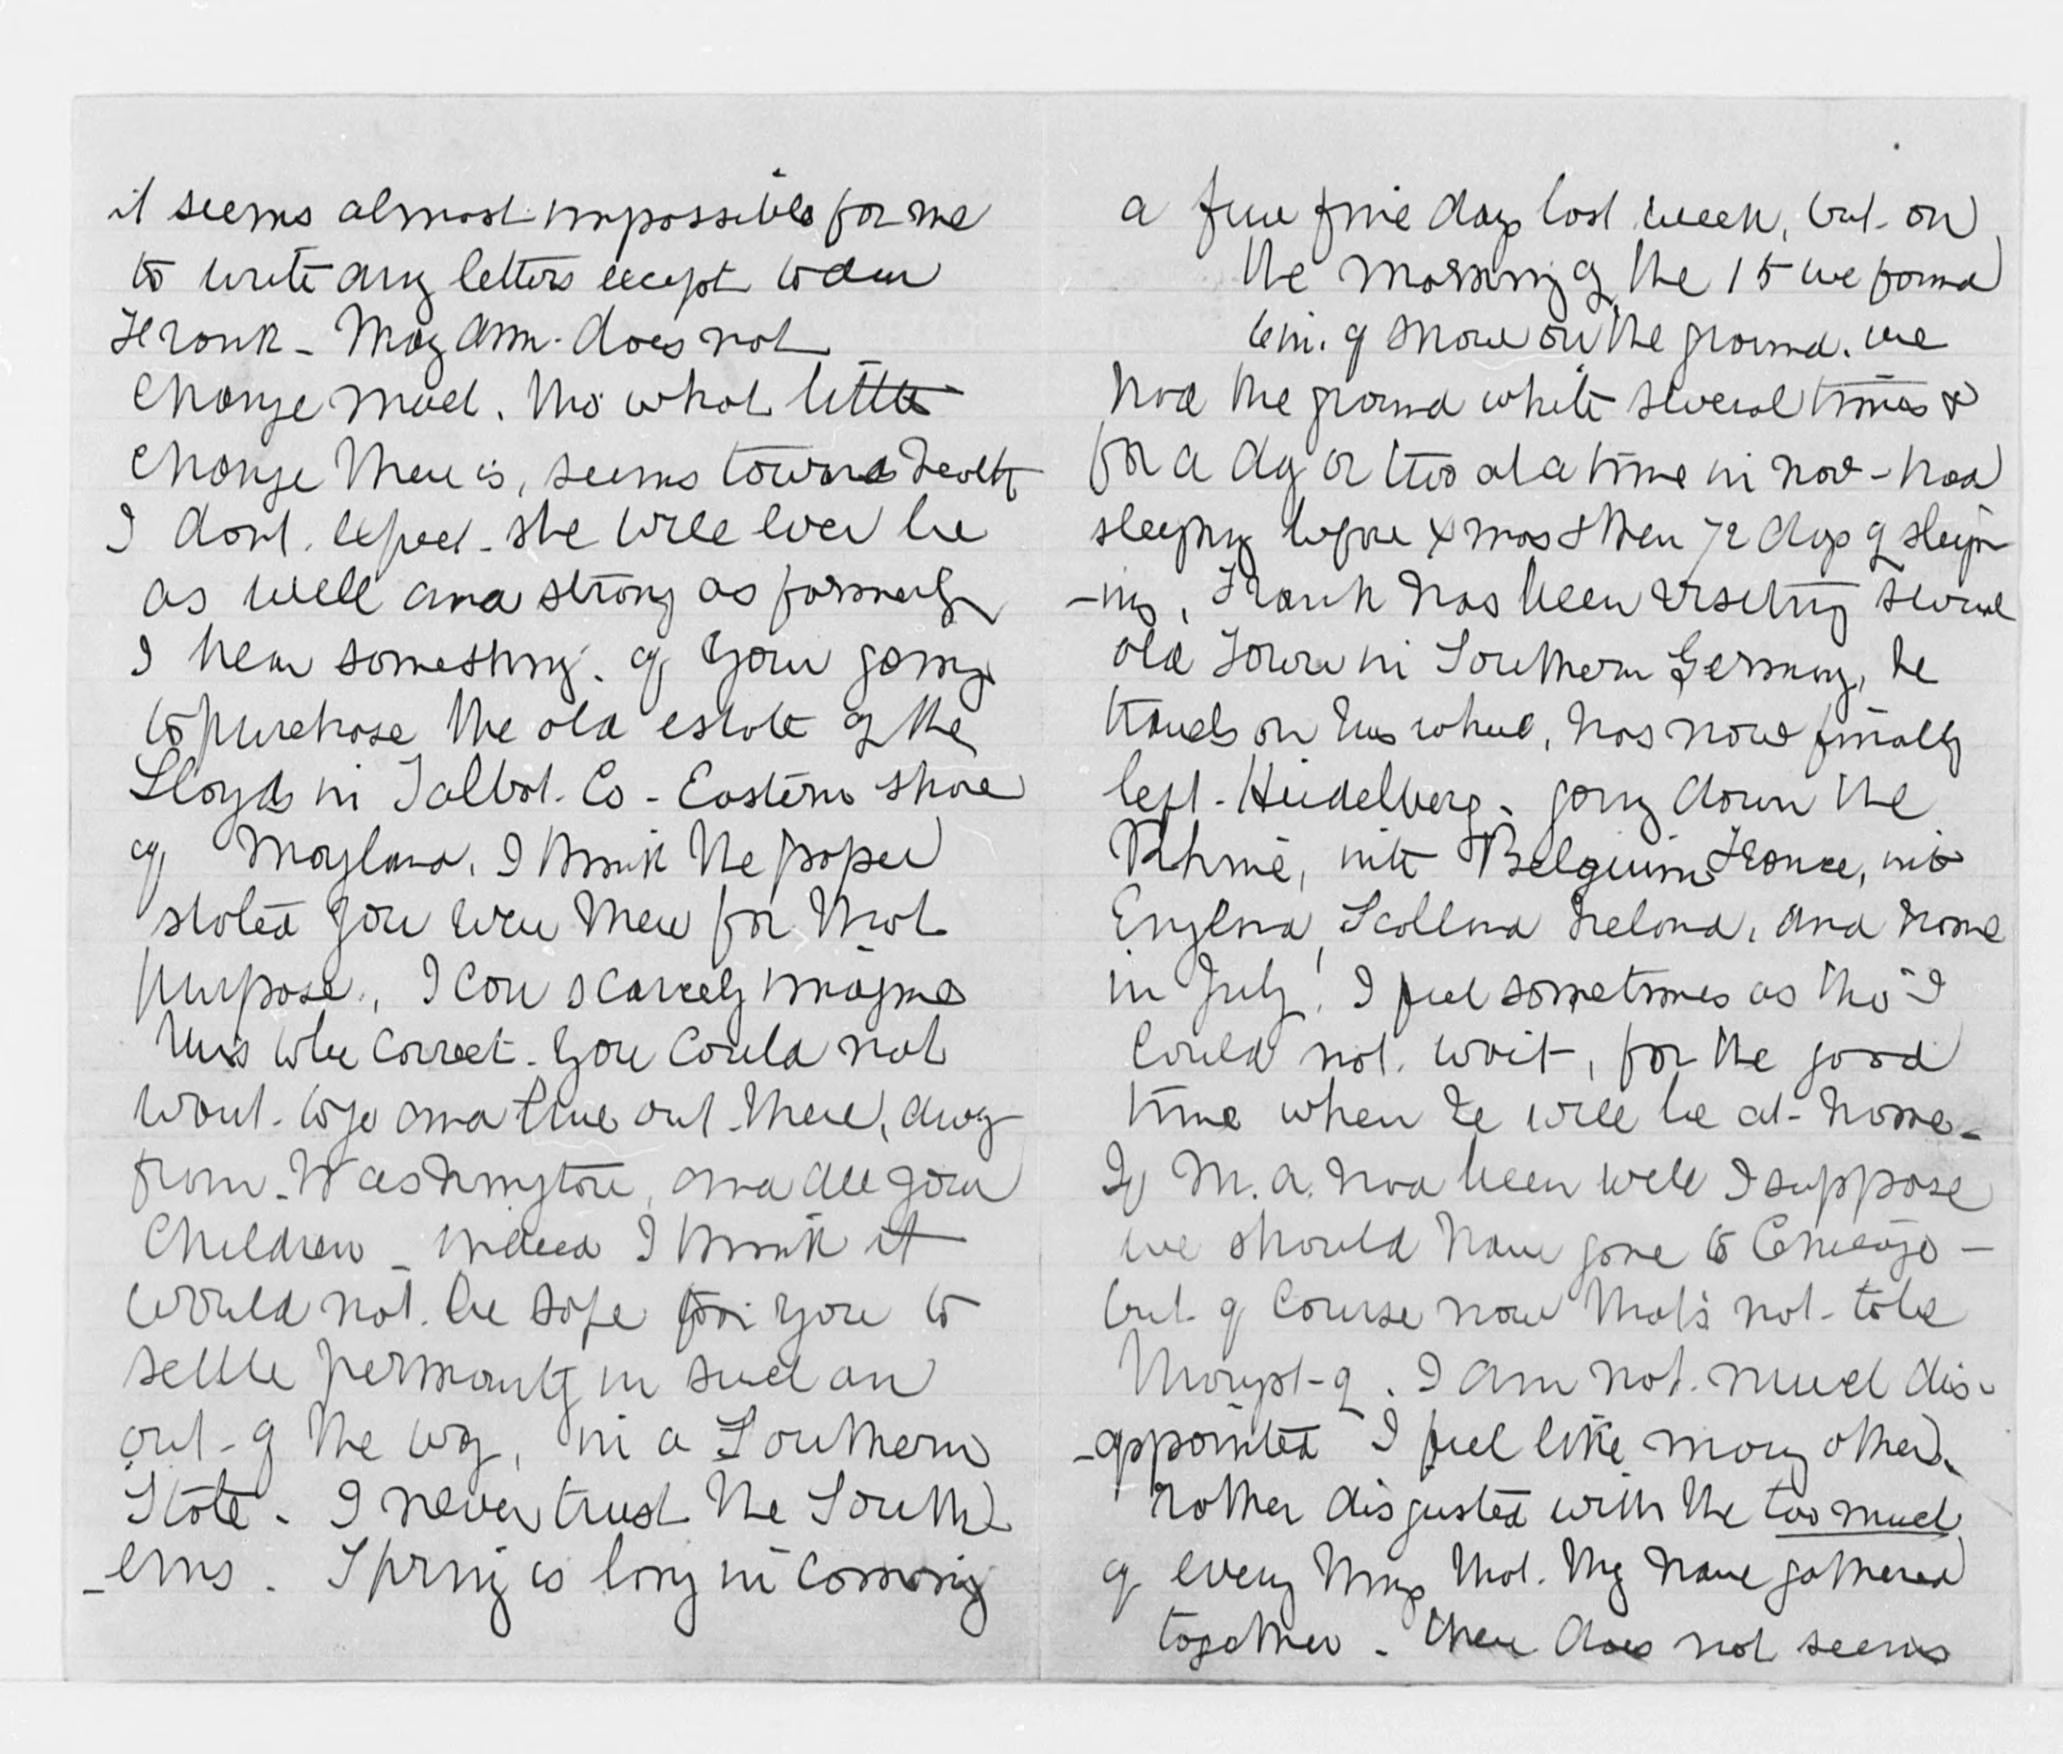 it seems almost impossible for me
to write any letters except to dear
Frank - May Ann - does not
change much, tho' what little
change there is, seems toward health
I don't expect - she will ever be
as well and strong as formerly
I hear something of your going
to purchase the old estate of the
Lloyds in Talbot Co - Eastern shore
of Maryland, I think the paper
stated you were there for that
purpose, I can scarcely imagine
this to be correct - You could not
want to go and live out there, away
from Washington, and all your
Children - indeed I think it
would not be safe for you to
settle permantly in such an
out-of the way, in a Southern
State - I never trust the South
-erns. Spring is long in coming
a few fine days last week, but on
the morning of the 15 we found
6 in. of snow on the ground. we
had the ground white several times &
for a day or two at a time in Nov - had
sleighing before Xmas & then 72 days of sleigh
-ing, Frank has been visiting several
old Towns in Southern Germany, he
travels on his wheel, has now finally
left - Heidelberg - going down the
Rhine, into Belgium, France, into
England, Scotland Ireland, and home
in July! I feel sometimes as tho' I
could not wait, for the good
time when he will be at home -
If M. A. had been well I suppose
we should have gone to Chicago -
but of course now that's not to be
thought of. I am not much dis-
-appointed I feel like many others,
rather disgusted with the too much
of every thing that they have gathered
together - there does not seems